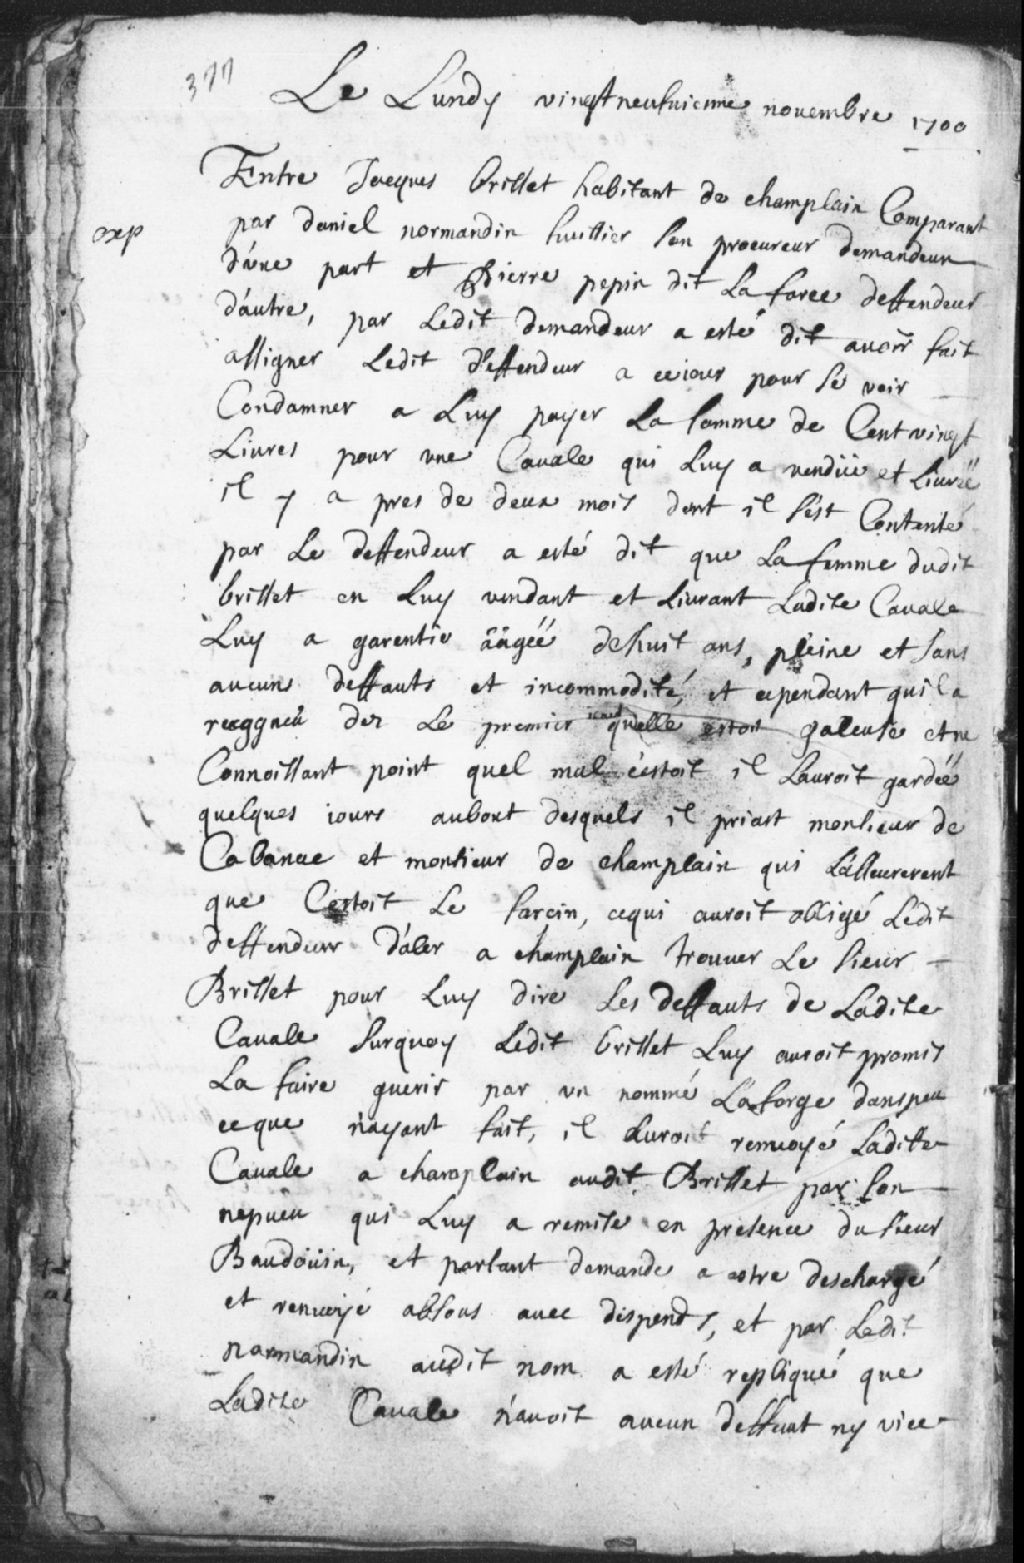 377
Le Lundy vingt neufuieme nouembre 1700
Entre Jacques brisset habitant de champlain Comparant
exp
par daniel normandin huissier son procureur demandeur
d'une part et Pierre pepin dit La force deffendeur
d'autre, par Ledit demandeur a esté dit auoir fait
assigner Ledit deffendeur a ceiour pour se voir
Condamner a Luy payer La somme de Cent vingt
Liures pour vne Cauale qui Luy a vendüe et Liuréé
il y a pres de deux mois dont il s'est Contenté
par Le deffendeur a esté dit que La femme dudit
brisset en Luy vendant et Liurant Ladite Cauale
Luy a garentie ââgéé dehuit ans, pleine et sans
aucuns deffauts et incommodité, et cependant quila
des Le premier quelle estoit galeuse et ne
Connoissant point quel mal c'estoit il Lauroit gardéé
quelques iours aubout desquels il priast monsieur de
Cabanac et monsieur de champlain qui L'asseurerent
que C'estoit Le farcin, cequi auroit obligé Ledit
deffendeur d'aler a champlain trouuer Le sieur
Brisset pour Luy dire Les deffauts de Ladite
Cauale surquoy Ledit brisset Luy auroit promis
La faire guerir par vn nommé Laforge danspeu
ceque n'ayant fait, il auroit renuoyé Ladite
Cauale a champlain audit Brisset par son
nepueu qui Luy a remise en presence du sieur
Baudoüin, et partant demande a estre deschargé
et renuoyé absous auec dispends, et par Ledit
normandin audit nom a esté repliqué que
Ladite Cauale n'auoit aucun deffaut ny vice